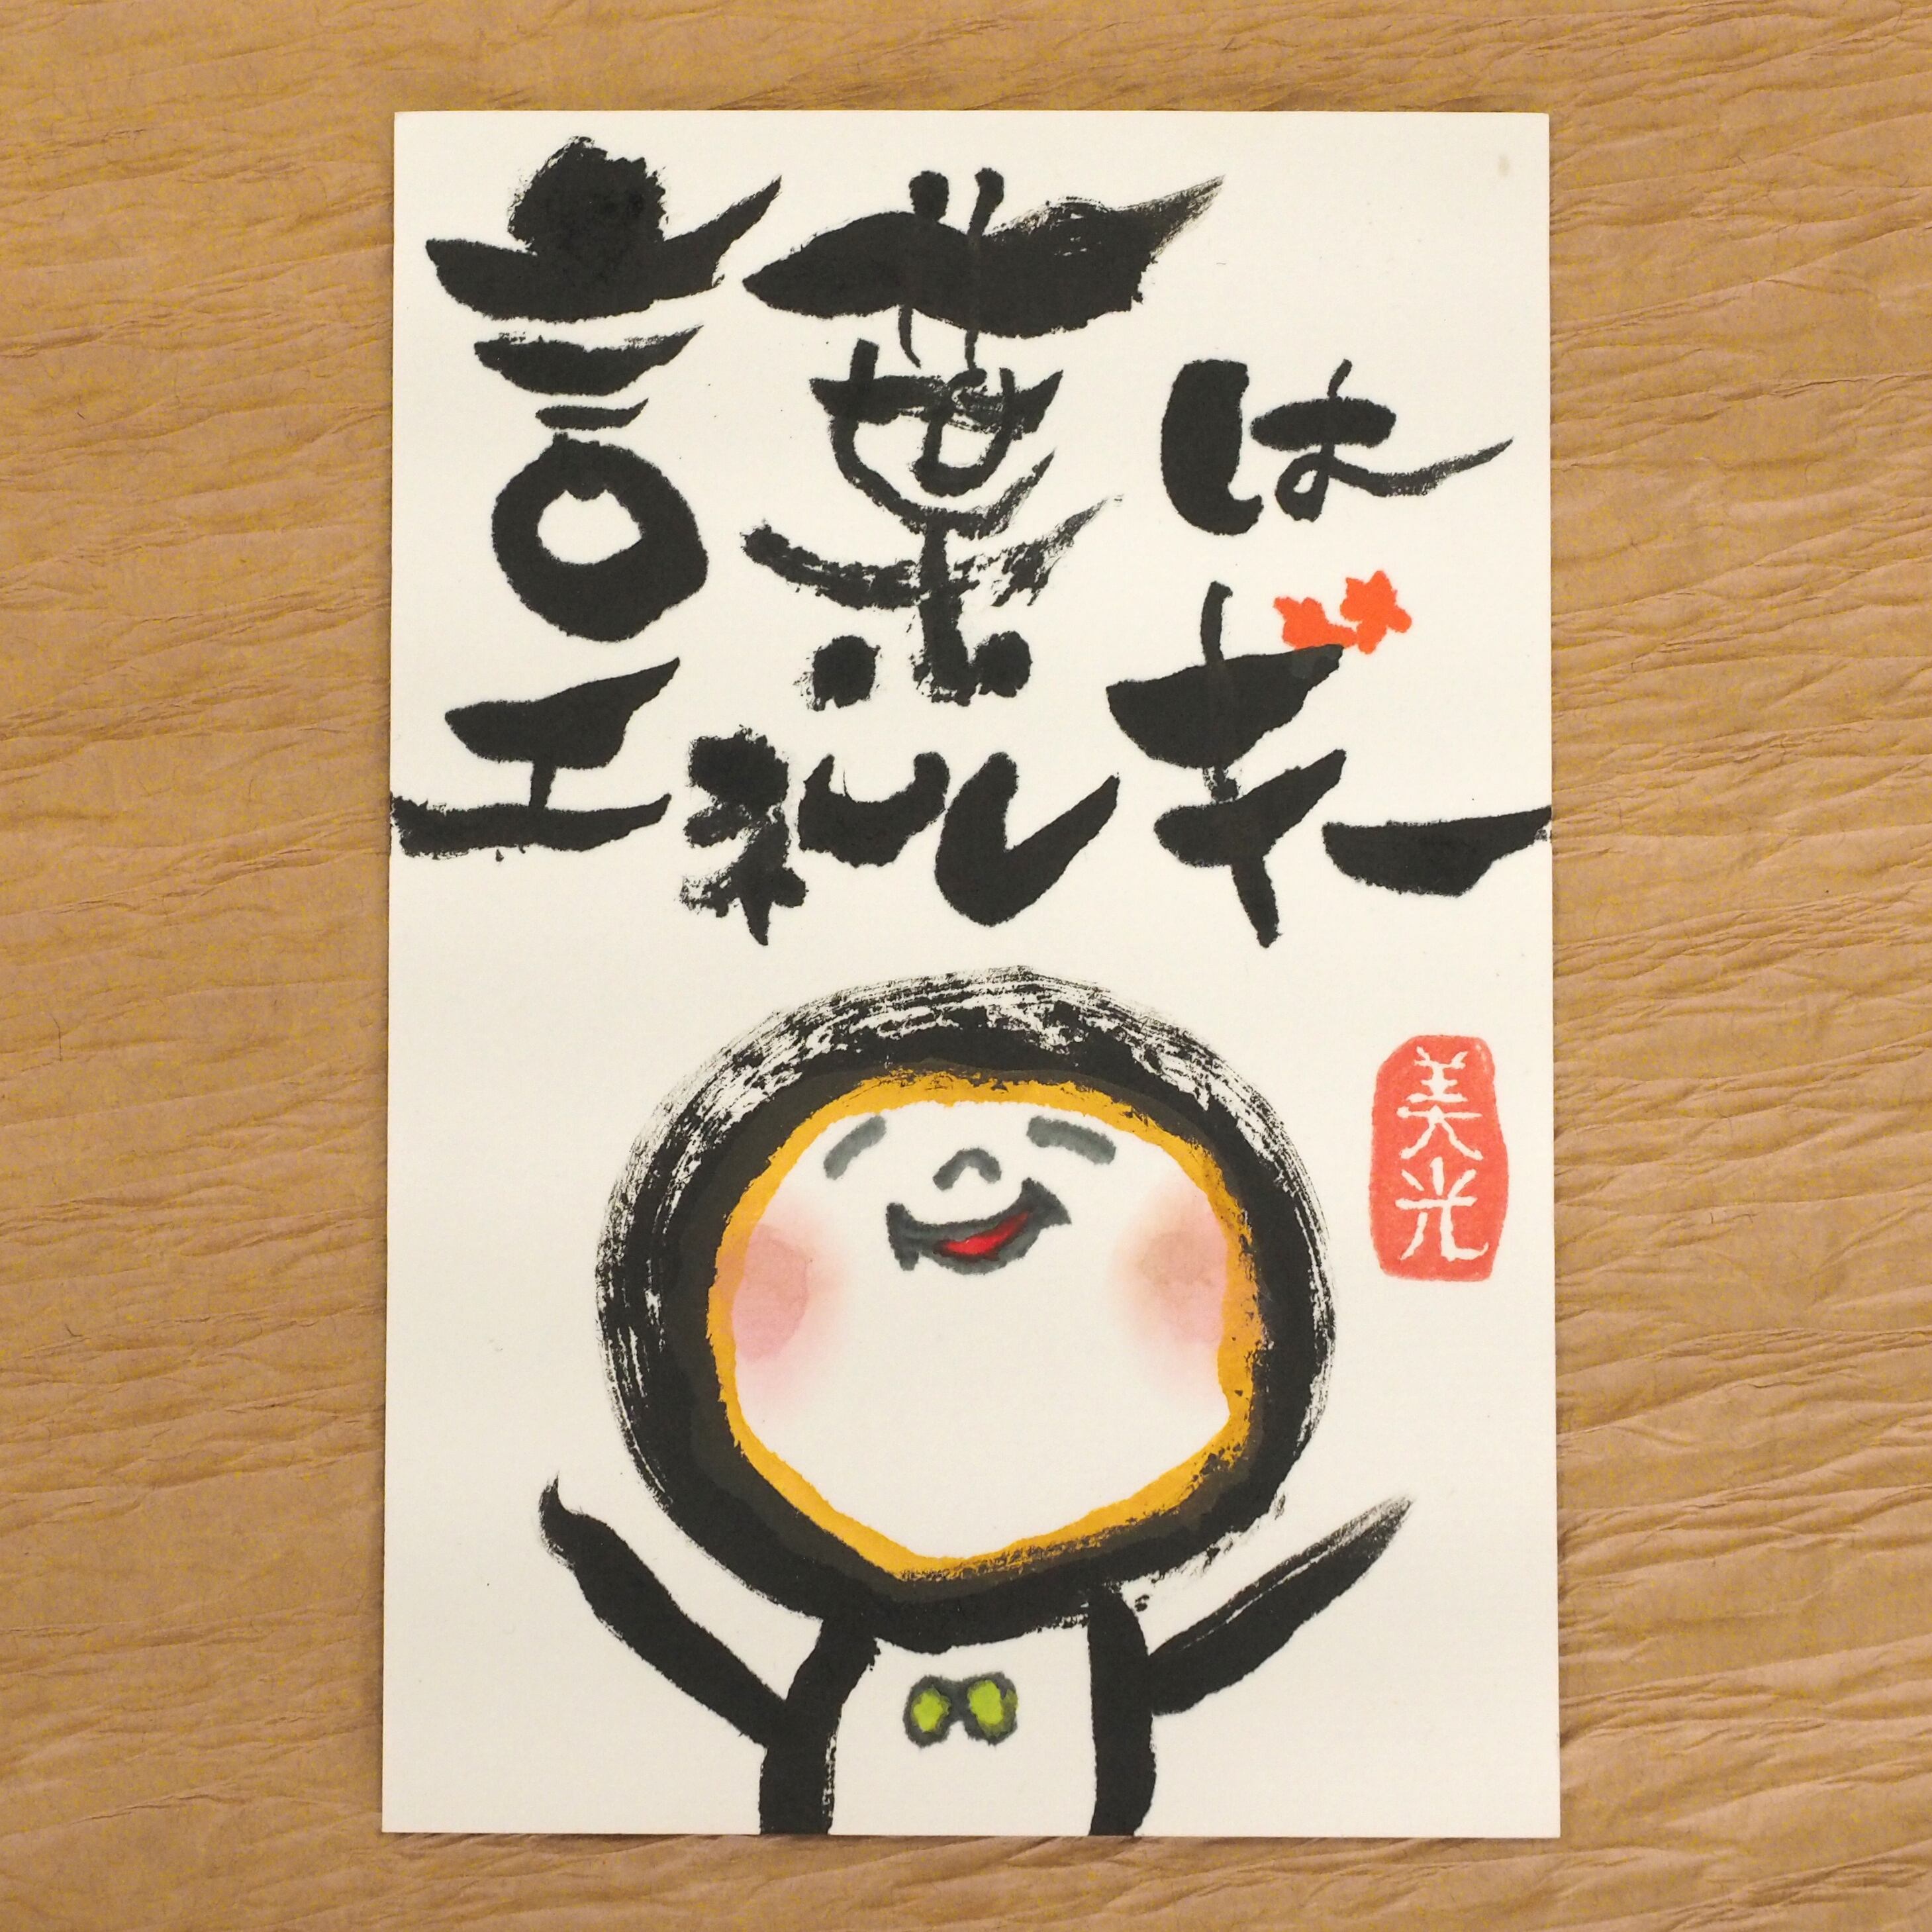 言葉は
エネルギー
美光